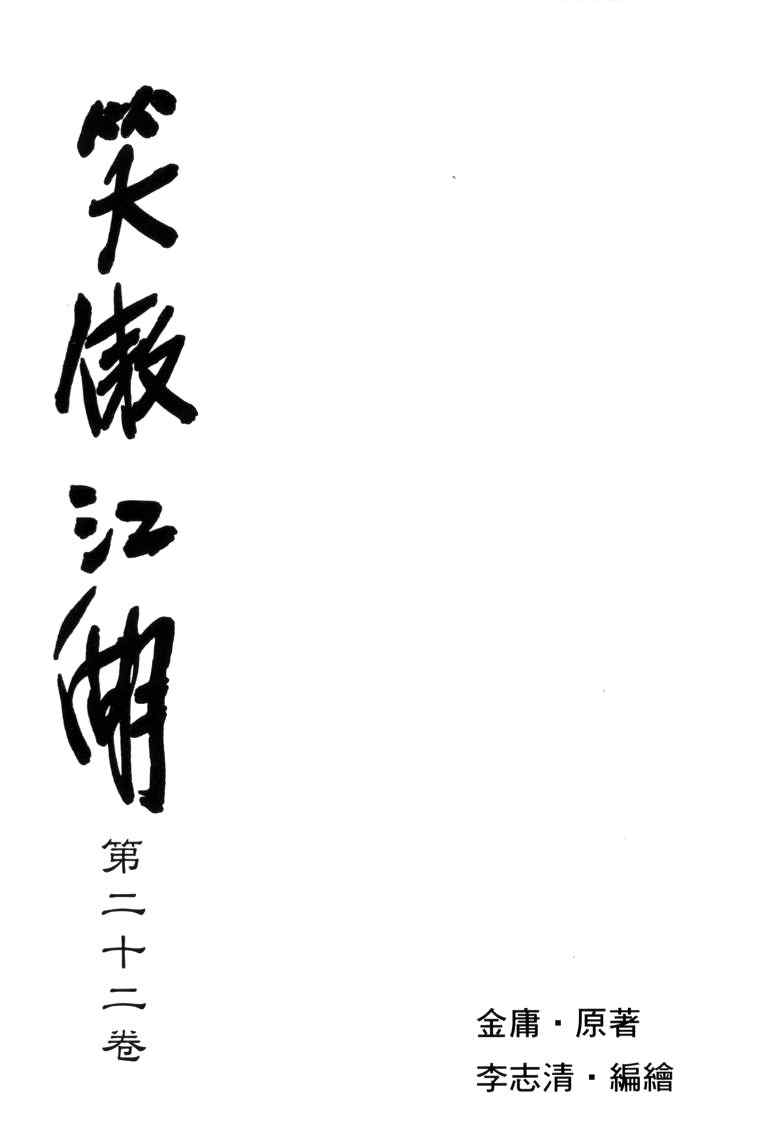 笑傲江湖
第二十二卷
金庸·原著
李志清·編繪